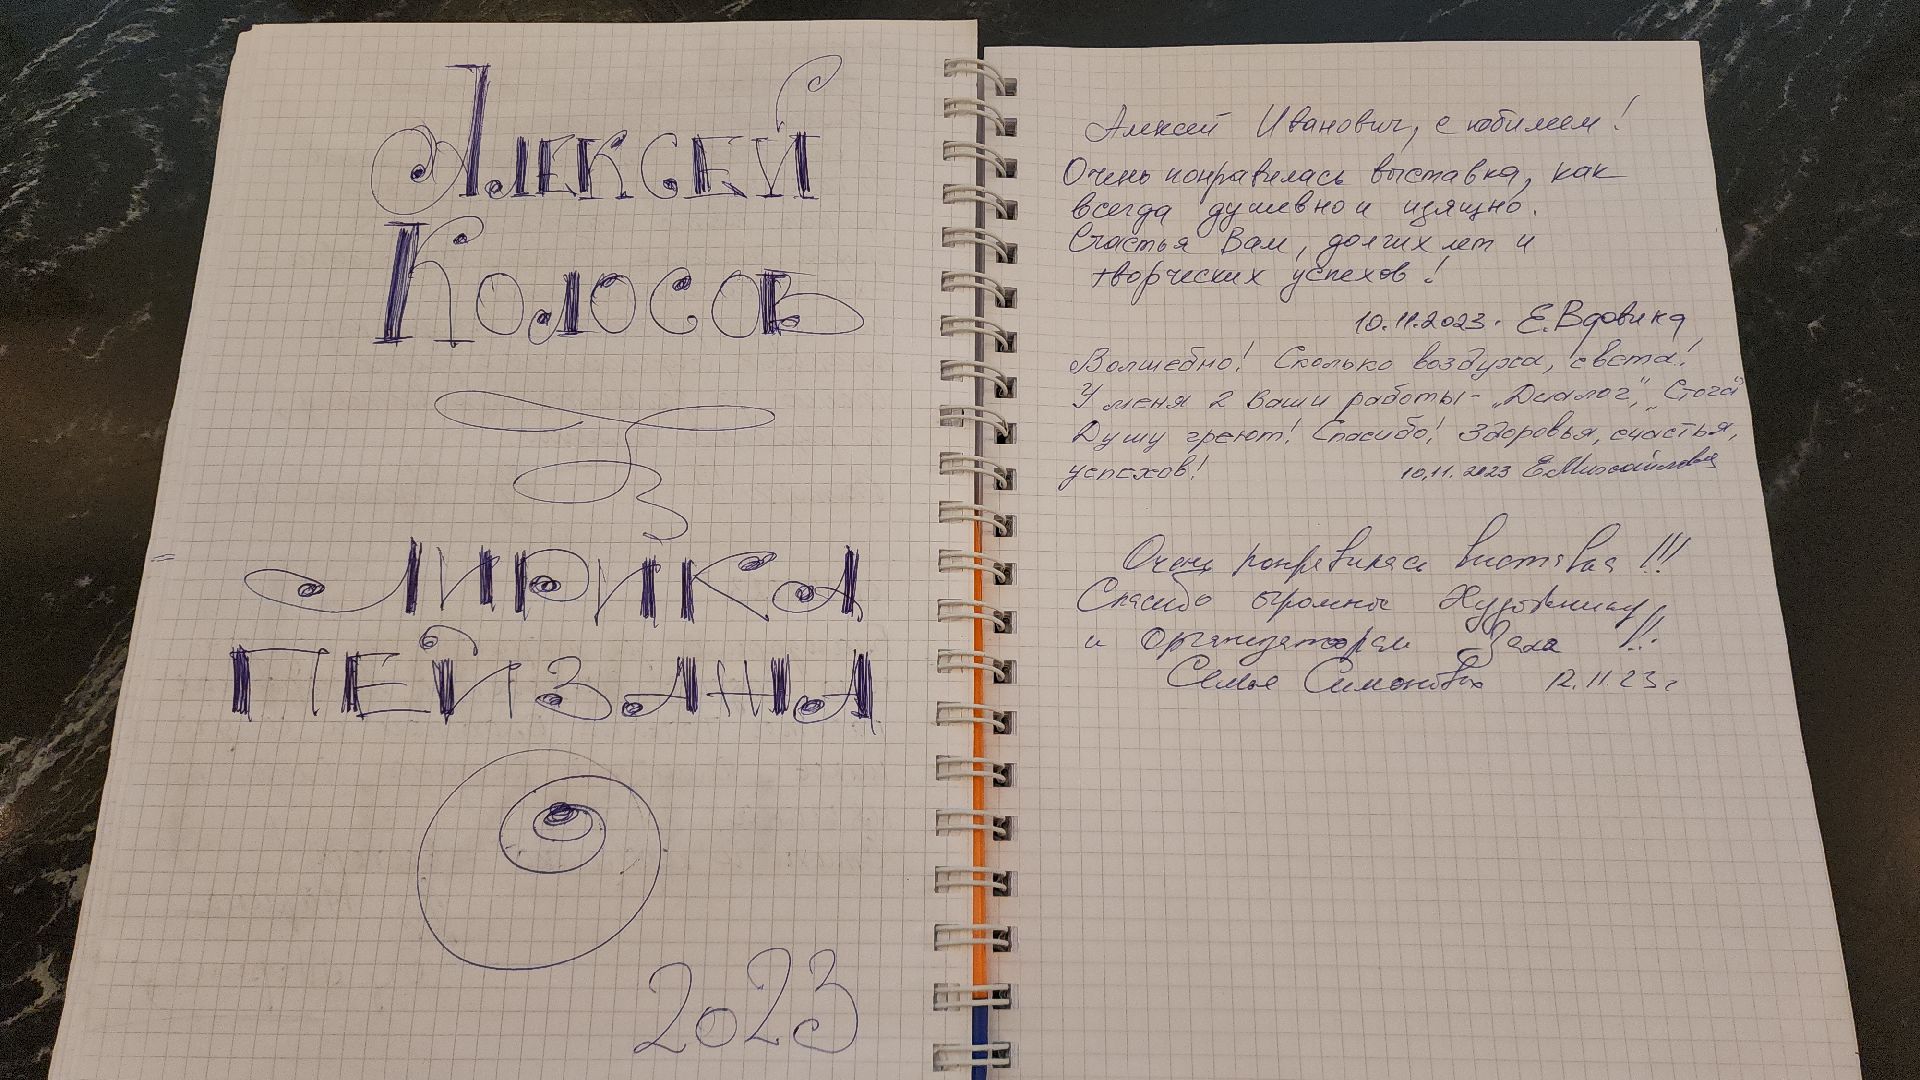 Алексей
Колосов
Лирика
пейзажа
2023
Алексей Иванович, с юбилеем!
Очень понравилась выставка, как
всегда душевно и изящно.
Счастья Вам, долгих лет и
творческих успехов!
10.11.2023. Е.Вдовина
Волшебно! Сколько воздуха, света!
У меня 2 Ваши работы - „Диалог", „Стога"
Душу греют! Спасибо! Здоровья, счастья,
успехов!
10.11.2023 Е.Михайлова
Очень понравилась выставка!!!
Спасибо огромное Художнику
и Организаторам Зала!!!
Семья Симоновых 12.11.23г